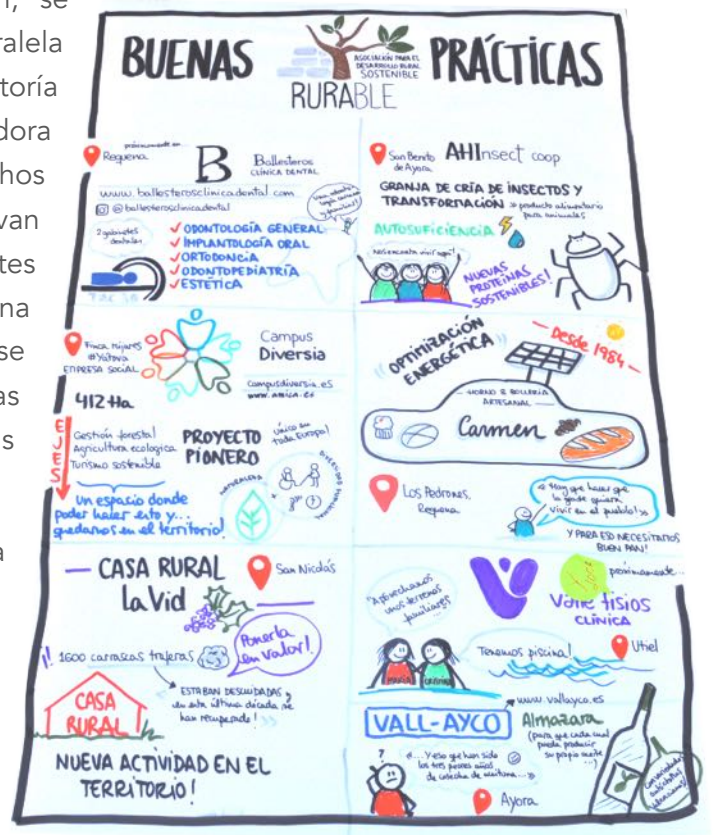 se
ralela
toría
dora
hos
van
tes
na
se
as
s
a
BUENAS PRÁCTICAS
ASOCIACIÓN PARA EL
DESARROLLO RURAL
SOSTENIBLE
RURABLE
próximamente en
Requena
B
Ballesteros
CLÍNICA DENTAL
www.ballesterosclinicadental.com
@ballesterosclinicadental
2 gabinetes
dentales
✓ ODONTOLOGÍA GENERAL
✓ IMPLANTOLOGÍA ORAL
✓ ORTODONCIA
✓ ODONTOPEDIATRÍA
✓ ESTÉTICA
San Benito
de Ayora
AHInsect coop
GRANJA DE CRÍA DE INSECTOS Y
TRANSFORMACIÓN » producto alimentario
para animales
AUTOSUFICIENCIA
¡Nos encanta vivir aquí!
NUEVAS
PROTEÍNAS
SOSTENIBLES!
Finca Mijares
#Yátova
EMPRESA SOCIAL
Campus
Diversia
campusdiversia.es
www.amica.es
412 Ha
EJES
Gestión forestal
Agricultura ecológica
Turismo sostenible
PROYECTO
PIONERO
único en
toda Europa!
NATURALEZA
DIVERSIDAD FUNCIONAL
un espacio donde
poder hacer esto y...
quedarnos en el territorio!
"OPTIMIZACIÓN
ENERGÉTICA"
— Desde 1984 —
— HORNO & BOLLERÍA
ARTESANAL —
Carmen
Los Pedrones,
Requena
« Hay que hacer que
la gente quiera
vivir en el pueblo! »
Y PARA ESO NECESITAMOS
BUEN PAN!
— CASA RURAL
la Vid
San Nicolás
1600 carrascas truferas
Ponerla
en valor!
ESTABAN DESCUIDADAS y
en esta última década se
han recuperado!
CASA
RURAL
NUEVA ACTIVIDAD EN EL
TERRITORIO!
"Aprovechamos
unos terrenos
familiares"
próximamente...
CLÍNICA
Tenemos piscina!
Utiel
VALL-AYCO
www.vallayco.es
Almazara
(para que cada cual
pueda producir
su propio aceite
...)
?
«...Y eso que han sido
los tres peores años
de cosecha de aceituna...»
Ayora